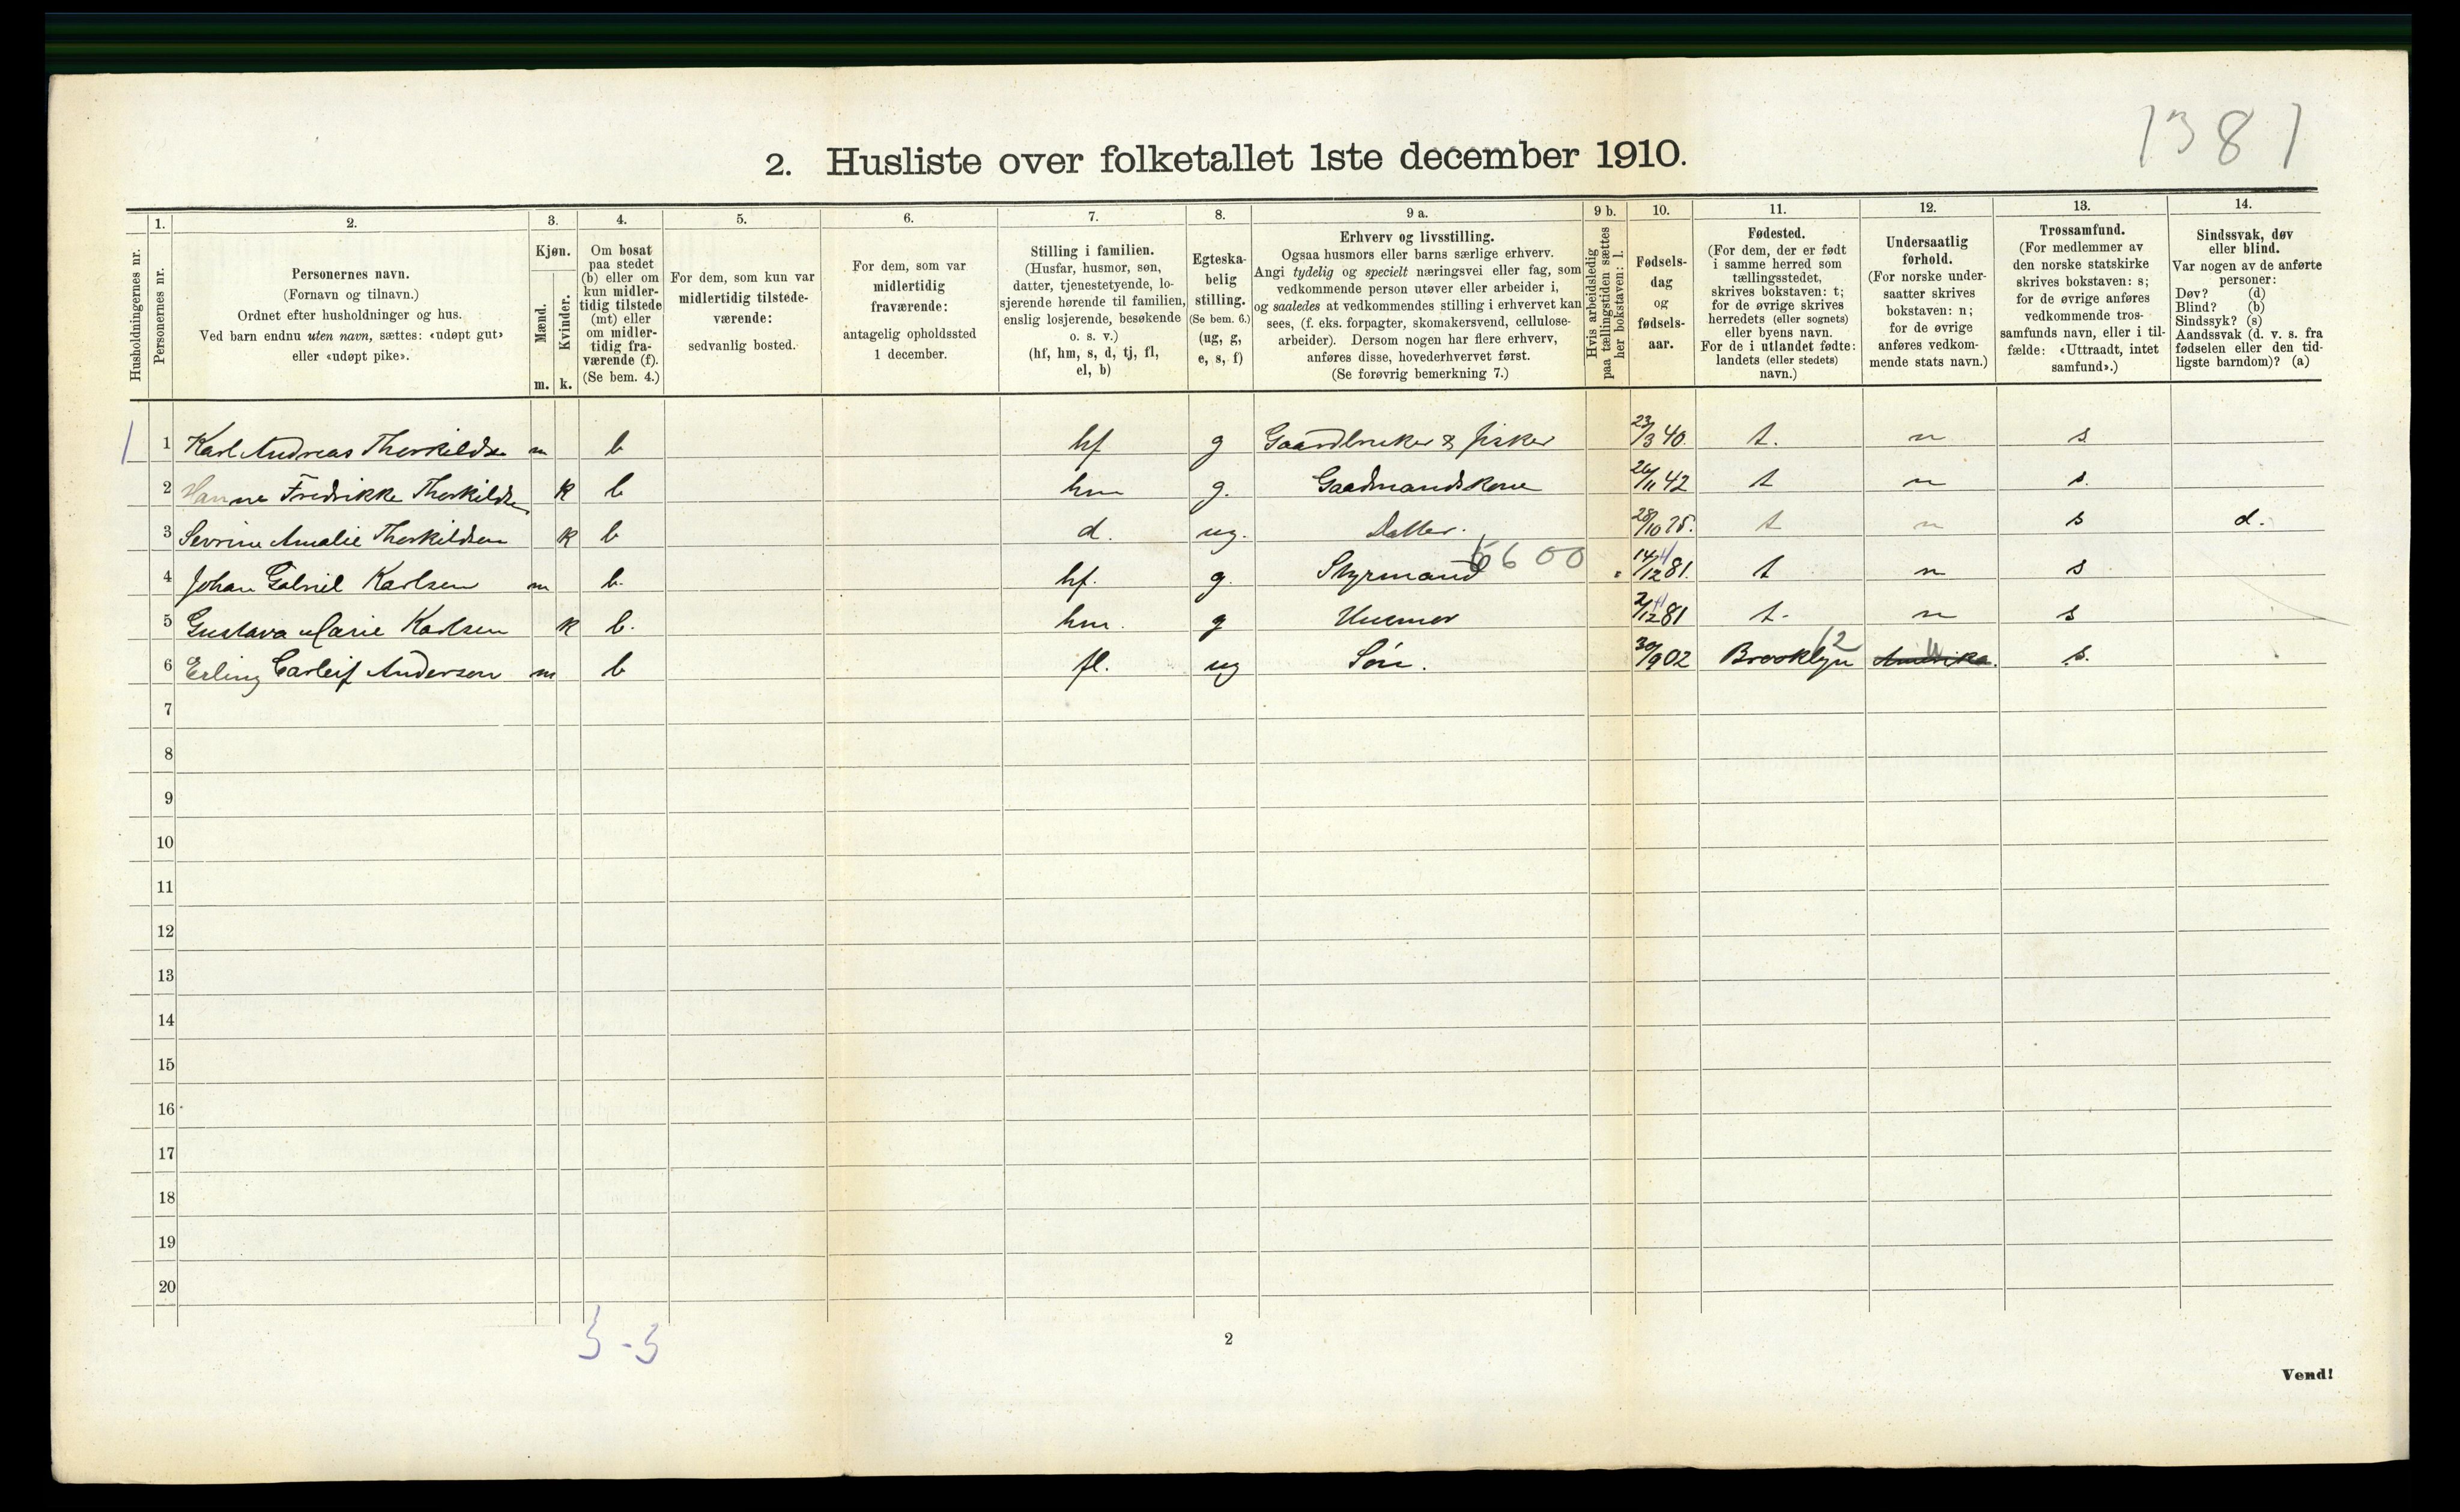 1381
2. Husliste over folketallet 1ste december 1910.
Husholdningernes nr.
1. Personernes nr.
2. Personernes navn.
(Fornavn og tilnavn.)
Ordnet efter husholdninger og hus.
Ved barn endnu uten navn, sættes: «udøpt gut»
eller «udøpt pike».
3. Kjøn.
Mænd. m.
Kvinder. k.
4. Om bosat
paa stedet
(b) eller om
kun midler-
tidig tilstede
(mt) eller
om midler-
tidig fra-
værende (f).
(Se bem. 4.)
5. For dem, som kun var
midlertidig tilstede-
værende:
sedvanlig bosted.
6. For dem, som var
midlertidig
fraværende:
antagelig opholdssted
1 december.
7. Stilling i familien.
(Husfar, husmor, søn,
datter, tjenestetyende, lo-
sjerende hørende til familien,
enslig losjerende, besøkende
o. s. v.)
(hf, hm, s, d, tj, fl,
el, b)
8. Egteska-
belig
stilling.
(Se bem. 6.)
(ug, g,
e, s, f)
9 a. Erhverv og livsstilling.
Ogsaa husmors eller barns særlige erhverv.
Angi tydelig og specielt næringsvei eller fag, som
vedkommende person utøver eller arbeider i,
og saaledes at vedkommendes stilling i erhvervet kan
sees, (f. eks. forpagter, skomakersvend, cellulose-
arbeider). Dersom nogen har flere erhverv,
anføres disse, hovederhvervet først.
(Se forøvrig bemerkning 7.)
9 b. Hvis arbeidsledig
paa tællingstiden sættes
her bokstaven: l.
10. Fødsels-
dag
og
fødsels-
aar.
11. Fødested.
(For dem, der er født
i samme herred som
tællingsstedet,
skrives bokstaven: t;
for de øvrige skrives
herredets (eller sognets)
eller byens navn.
For de i utlandet fødte:
landets (eller stedets)
navn.)
12. Undersaatlig
forhold.
(For norske under-
saatter skrives
bokstaven: n;
for de øvrige
anføres vedkom-
mende stats navn.)
13. Trossamfund.
(For medlemmer av
den norske statskirke
skrives bokstaven: s;
for de øvrige anføres
vedkommende tros-
samfunds navn, eller i til-
fælde: «Uttraadt, intet
samfund».)
14. Sindssvak, døv
eller blind.
Var nogen av de anførte
personer:
Døv? (d)
Blind? (b)
Sindssyk? (s)
Aandssvak (d. v. s. fra
fødselen eller den tid-
ligste barndom)? (a)
1 1 Karl Andreas Thorkildsen m b hf g Gaardbruker & fisker 23/3 40. t. n s
2 Hanne Fredrikke Thorkildsen k b hm g. Gaardmandskone 26/11 42 t n s.
3 Sevrine Amalie Thorkildsen k b d. ug. Datter. 28/10 75. t n s d.
4 Johan Gabriel Karlsen m b. hf. g. Styrmand 6600 14/12 81. t n s
5 Gustava Marie Karlsen k b. hm. g Husmor 2/12 81 t. n s
6 Erling Carleif Anderson m b fl. ug Søn. 30/9 02 Brooklyn 12 Amerika. n s.
7
8
9
10
11
12
13
14
15
16
17
18
19
20
3-3
2
Vend!